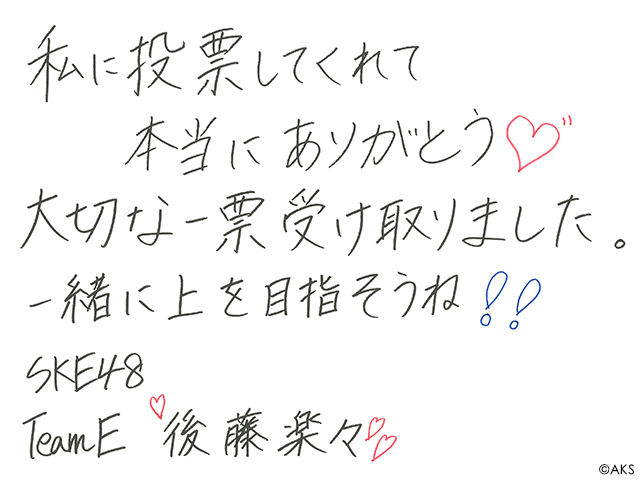 私に投票してくれて
本当にありがとう♡"
大切な一票受け取りました。
一緒に上を目指そうね!!
SKE48
TeamE ♡後藤楽々♡♡
©AKS